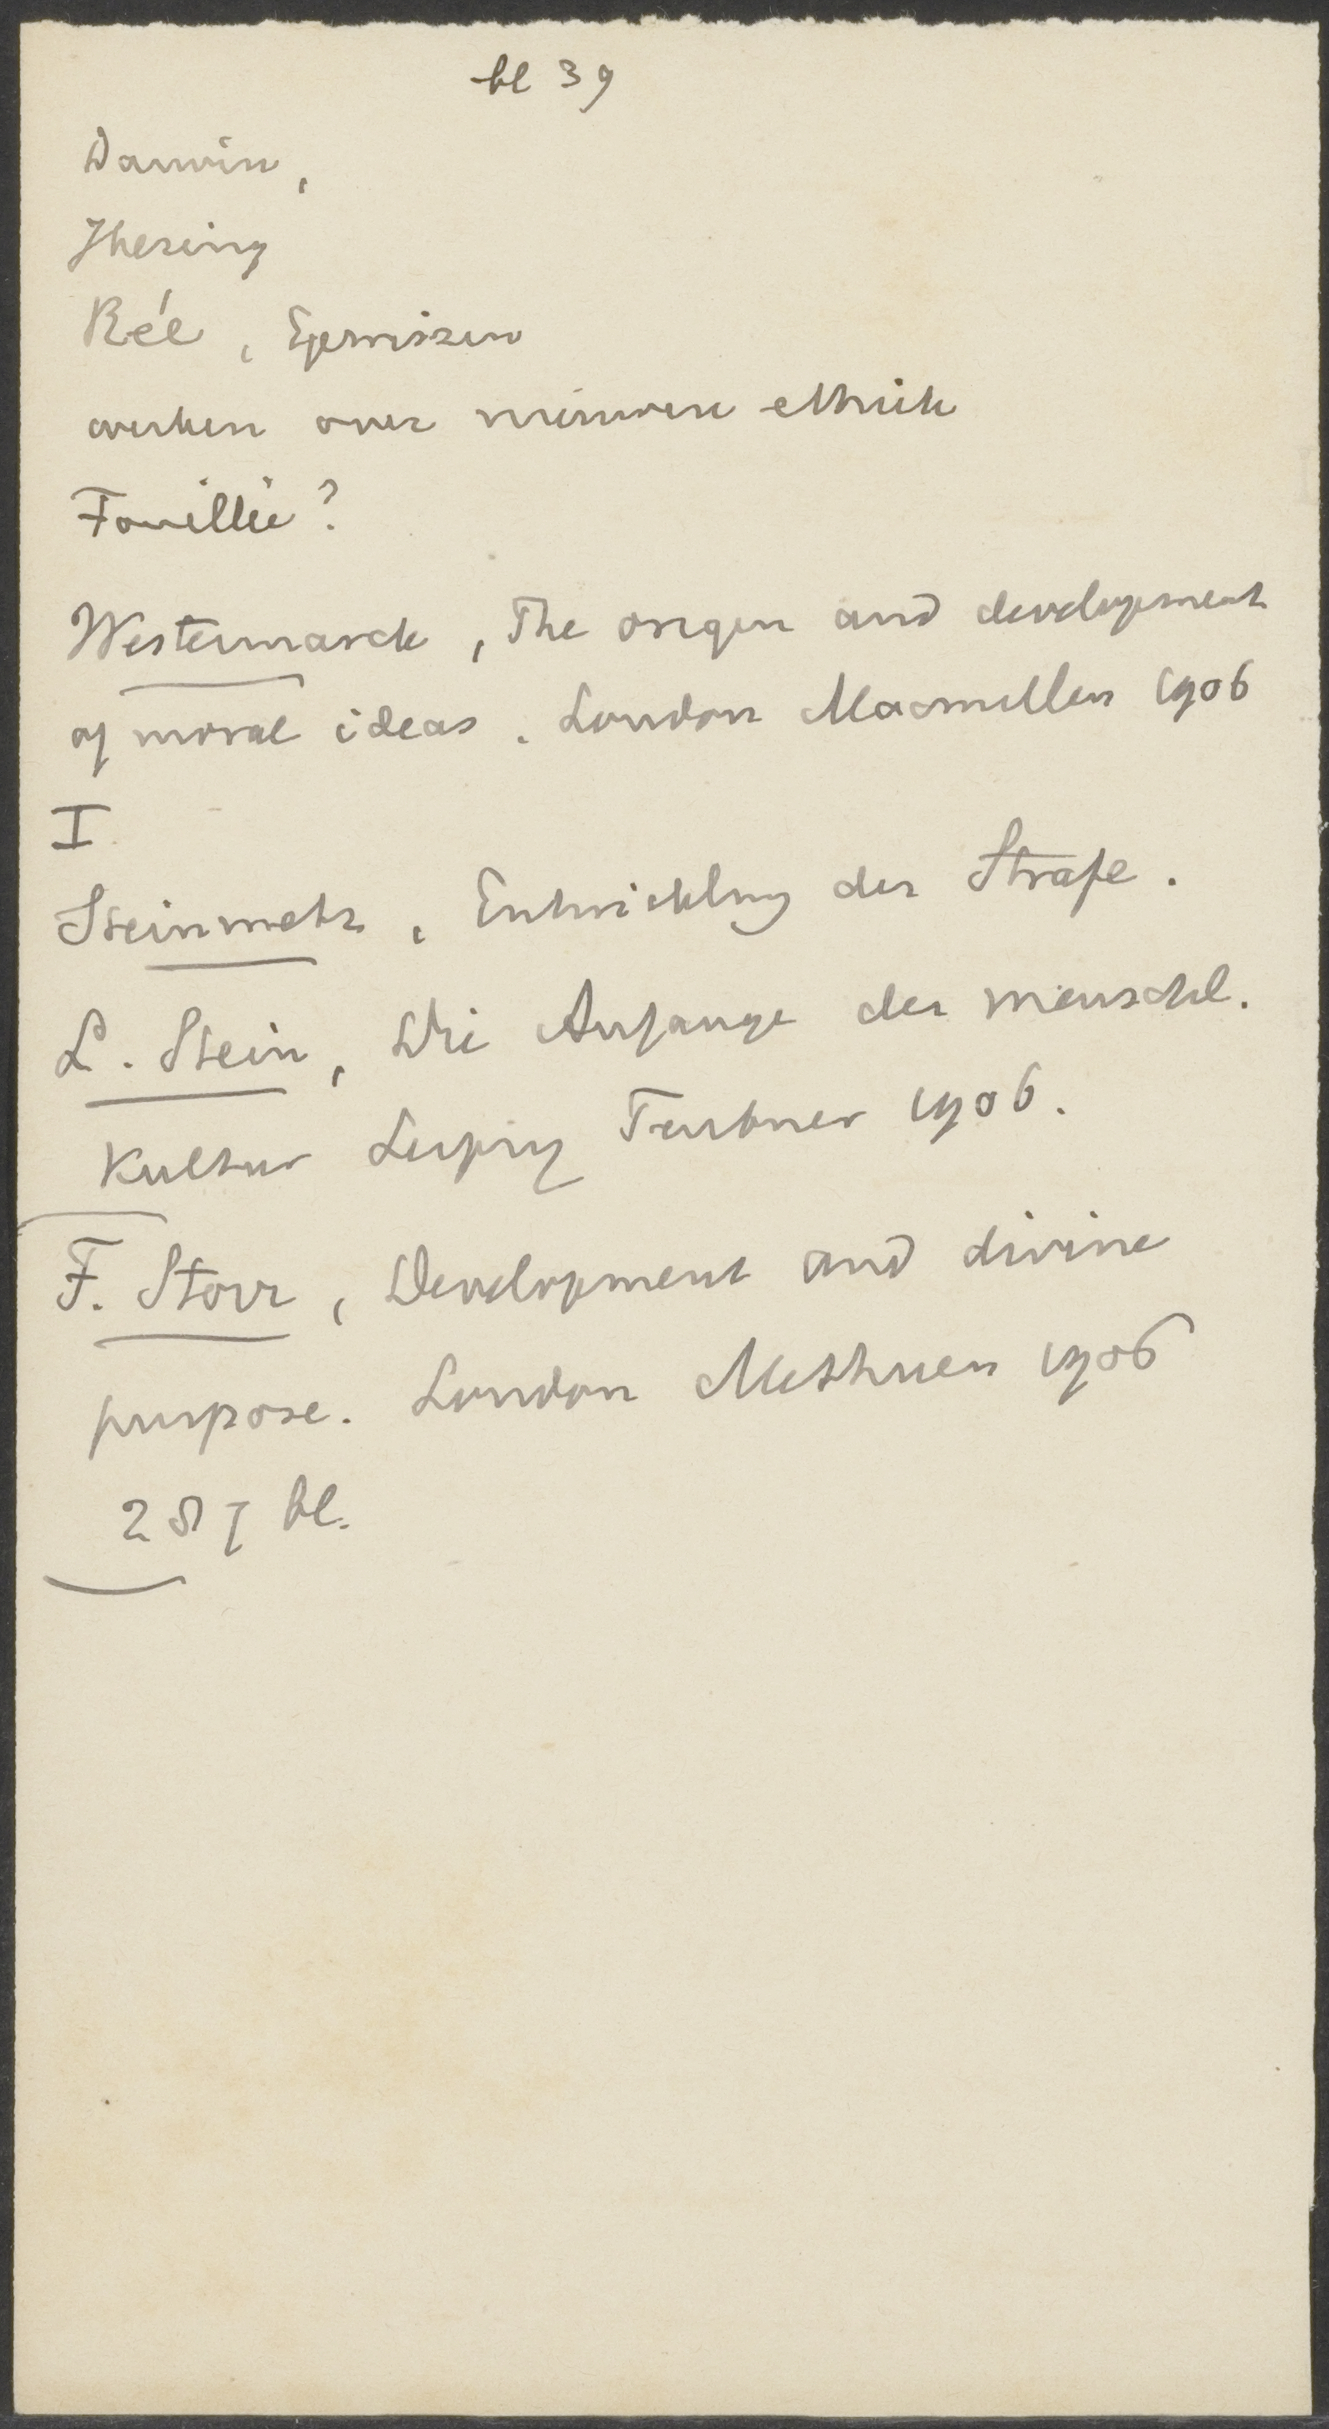 bl 39
Darwin,
Jhering
Rée, Gewissen
werken over nieuwere ethiek
Fouillée?
Westermarck, The origin and development
of moral ideas. London Macmillan 1906
I
Steinmetz, Entwicklung der Strafe.
L. Stein, Die Anfange der menschl.
Kultur Leipzig Teubner 1906.
F. Storr, Development and divine
purpose. London Methuen 1906
287 bl.